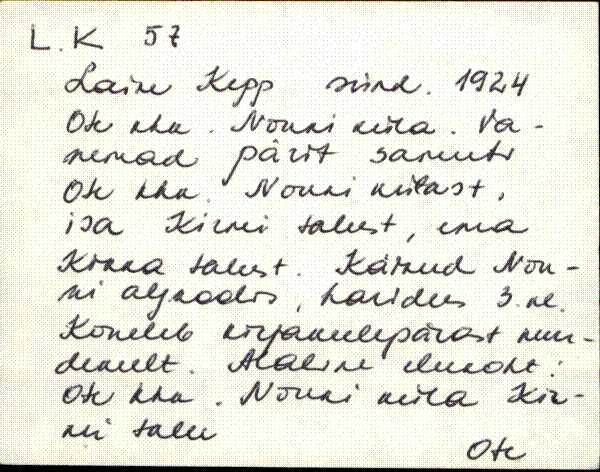 L.K 57
Laine Kepp sünd. 1924
Ote khk. Nouni küla. Va-
nemad pärit samuti
Ote khk. Nouni külast,
isa Kirni talust, ema
talust. Käinud Nou-
ni algkoolis, haridus 3. kl.
Koneleb kirjakeelepärast mur-
dekeelt. Alaline elukoht:
Ote khk. Nouni küla Kir-
ni talu
Ote